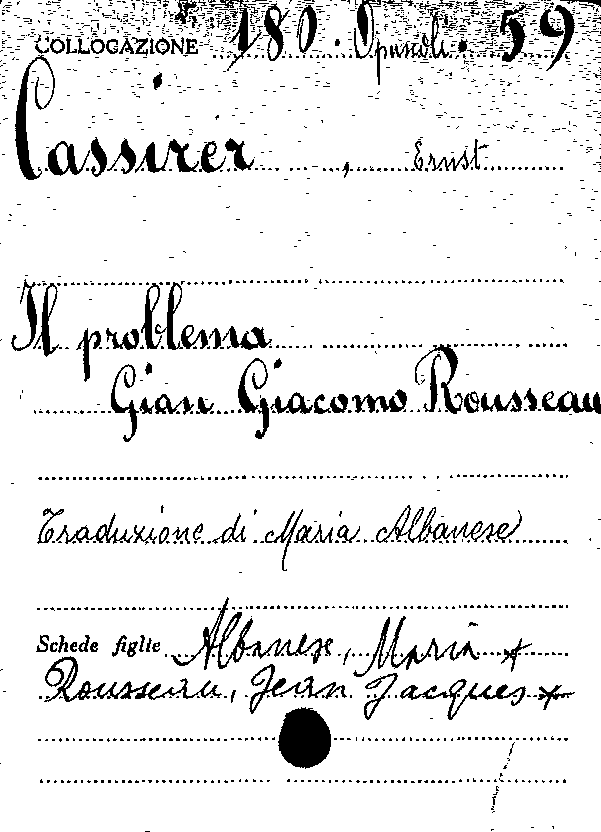 COLLOCAZIONE 180. Opuscoli. 59
Cassirer, Ernst
Il problema
Gian Giacomo Rousseau
Traduzione di Maria Albanese
Schede figlie Albanese, Maria +
Rousseau, Jean Jacques +